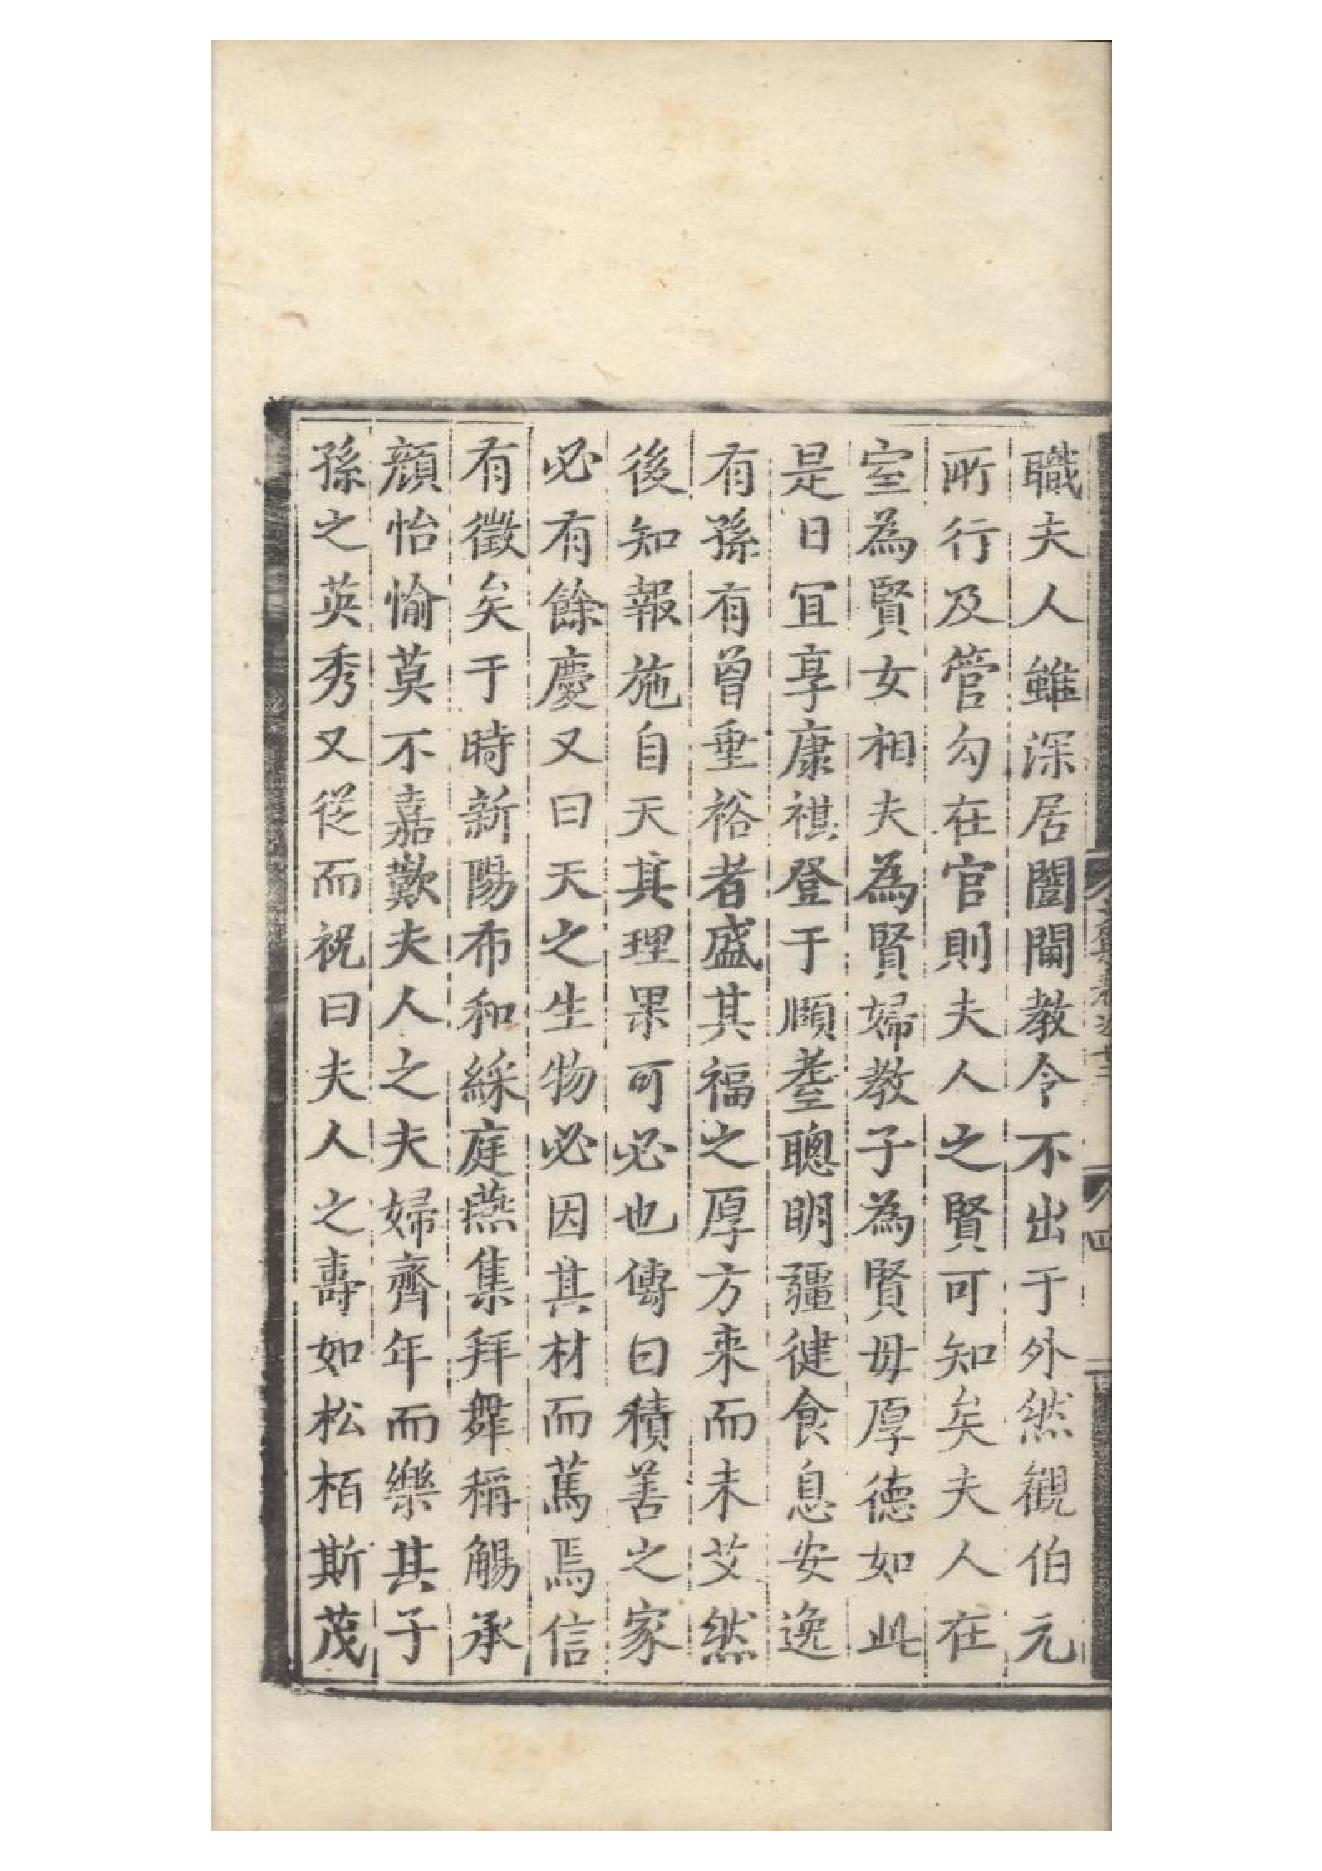 職夫人雖深居閨閫教令不出于外然觀伯元
所行及管勾在官則夫人之賢可知矣夫人在
室為賢女相夫為賢婦教子為賢毋厚德如此
是日宜享康祺登于順耋聰明疆健食息安逸
有孫有曾垂裕者盛其福之厚方来而未艾然
後知報施自天其理果可必也傳曰積善之家
必有餘慶又曰天之生物必因其材而篤焉信
有徵矣于時新陽布和綵庭燕集拜舞稱觴承
顔怡愉莫不嘉歎夫人之夫婦齊年而樂其子
孫之英秀又從而祝曰夫人之壽如松栢斯茂